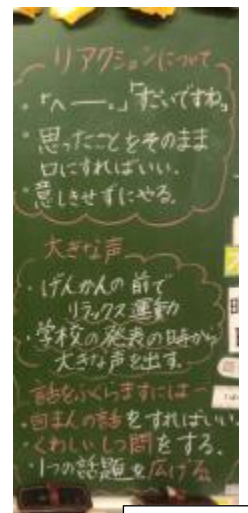 リアクションについて
・「へ――。」「すごいですね」
・思ったことをそのまま
口にすればいい。
・意しきせずにやる。
大きな声
・げんかんの前で
リラックス運動
・学校の発表の時から
大きな声を出す。
話をふくらますには
・自まんの話をすればいい。
・くわしいしつ問をする。
・1つの話題を広げる